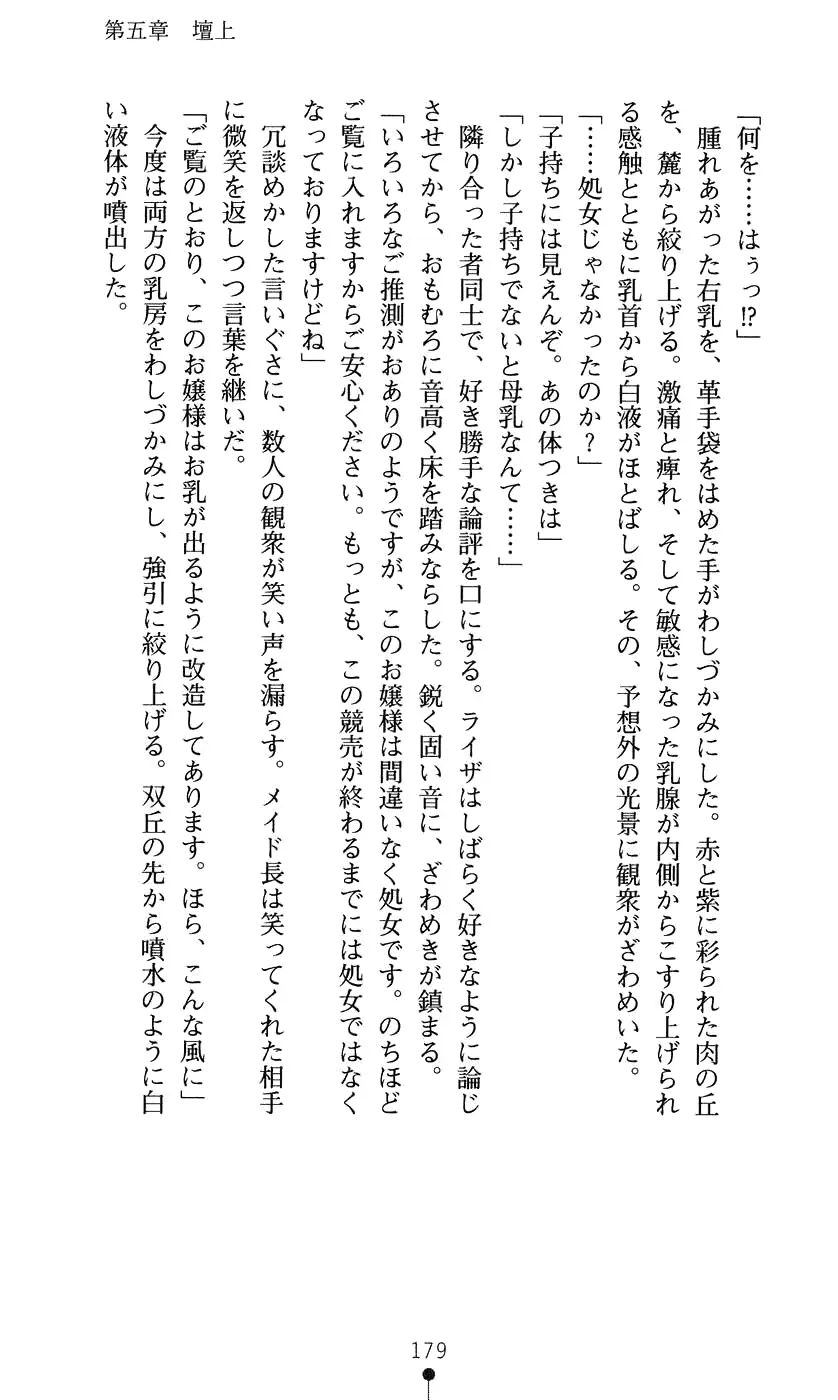 第五章　壇上
「何を……はぅっ!?」
　腫れあがった右乳を、革手袋をはめた手がわしづかみにした。赤と紫に彩られた肉の丘
を、麓から絞り上げる。激痛と痺れ、そして敏感になった乳腺が内側からこすり上げられ
る感触とともに乳首から白液がほとばしる。その、予想外の光景に観衆がざわめいた。
「……処女じゃなかったのか？」
「子持ちには見えんぞ。あの体つきは」
「しかし子持ちでないと母乳なんて……」
　隣り合った者同士で、好き勝手な論評を口にする。ライザはしばらく好きなように論じ
させてから、おもむろに音高く床を踏みならした。鋭く固い音に、ざわめきが鎮まる。
「いろいろなご推測がおありのようですが、このお嬢様は間違いなく処女です。のちほど
ご覧に入れますからご安心ください。もっとも、この競売が終わるまでには処女ではなく
なっておりますけどね」
　冗談めかした言いぐさに、数人の観衆が笑い声を漏らす。メイド長は笑ってくれた相手
に微笑を返しつつ言葉を継いだ。
「ご覧のとおり、このお嬢様はお乳が出るように改造してあります。ほら、こんな風に」
　今度は両方の乳房をわしづかみにし、強引に絞り上げる。双丘の先から噴水のように白
い液体が噴出した。
179